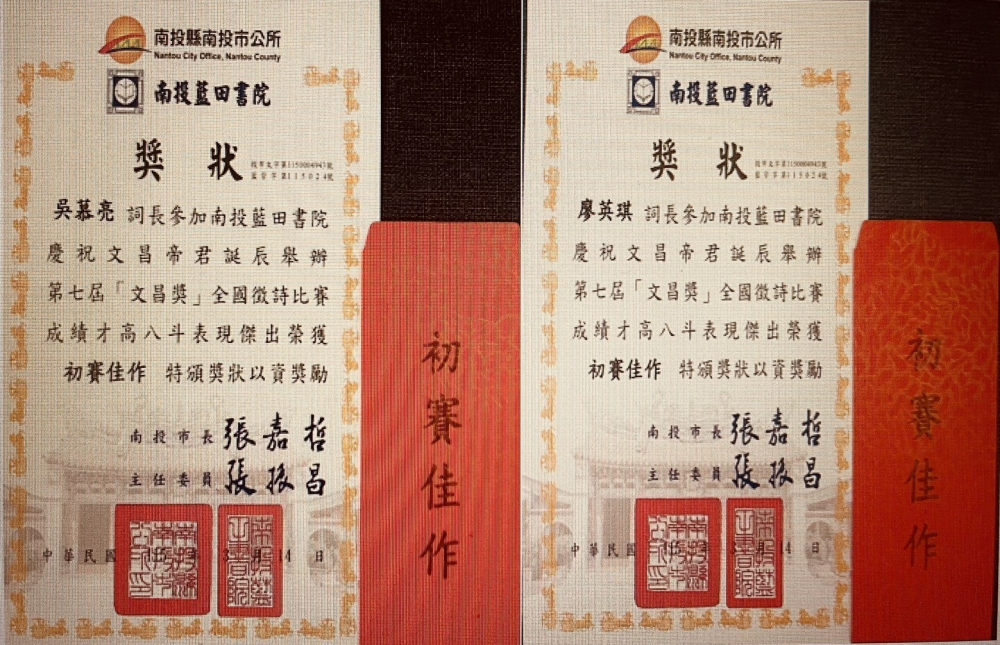 南投縣南投市公所
Nantou City Office, Nantou County
南投藍田書院
獎狀
投市文字第1150004943號
藍管字第115024號
吳慕亮 詞長參加南投藍田書院
慶祝文昌帝君誕辰舉辦
第七屆「文昌獎」全國徵詩比賽
成績才高八斗表現傑出榮獲
初賽佳作 特頒獎狀以資獎勵
南投市長 張嘉哲
主任委員 張振昌
中華民國 115年 3月14日
初賽佳作
南投縣南投市公所
Nantou City Office, Nantou County
南投藍田書院
獎狀
投市文字第1150004943號
藍管字第115024號
廖英琪 詞長參加南投藍田書院
慶祝文昌帝君誕辰舉辦
第七屆「文昌獎」全國徵詩比賽
成績才高八斗表現傑出榮獲
初賽佳作 特頒獎狀以資獎勵
南投市長 張嘉哲
主任委員 張振昌
中華民國 115年 3月14日
初賽佳作